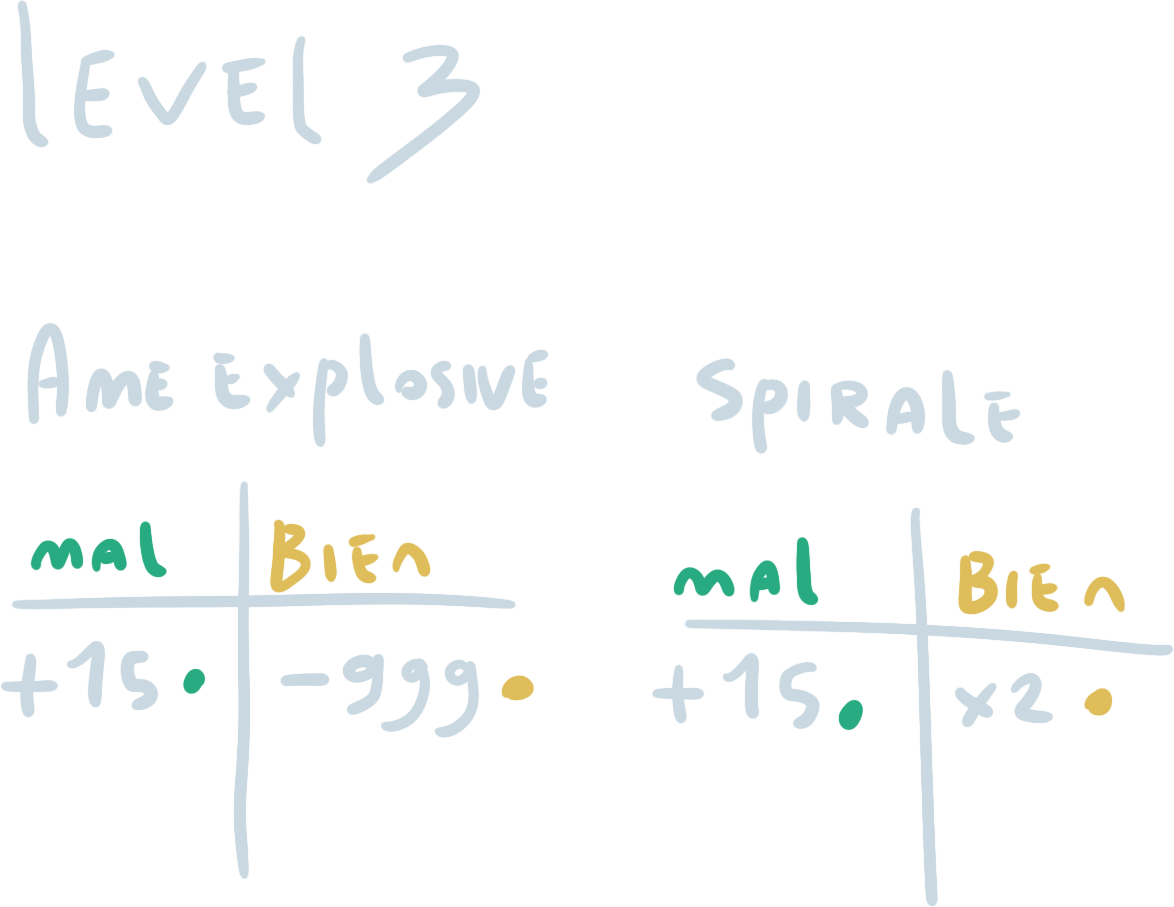 LEVEL 3
AME EXPLOSIVE
mAl BIEn
+15 -999
SPIRALE
mAl BIEn
+15 x2